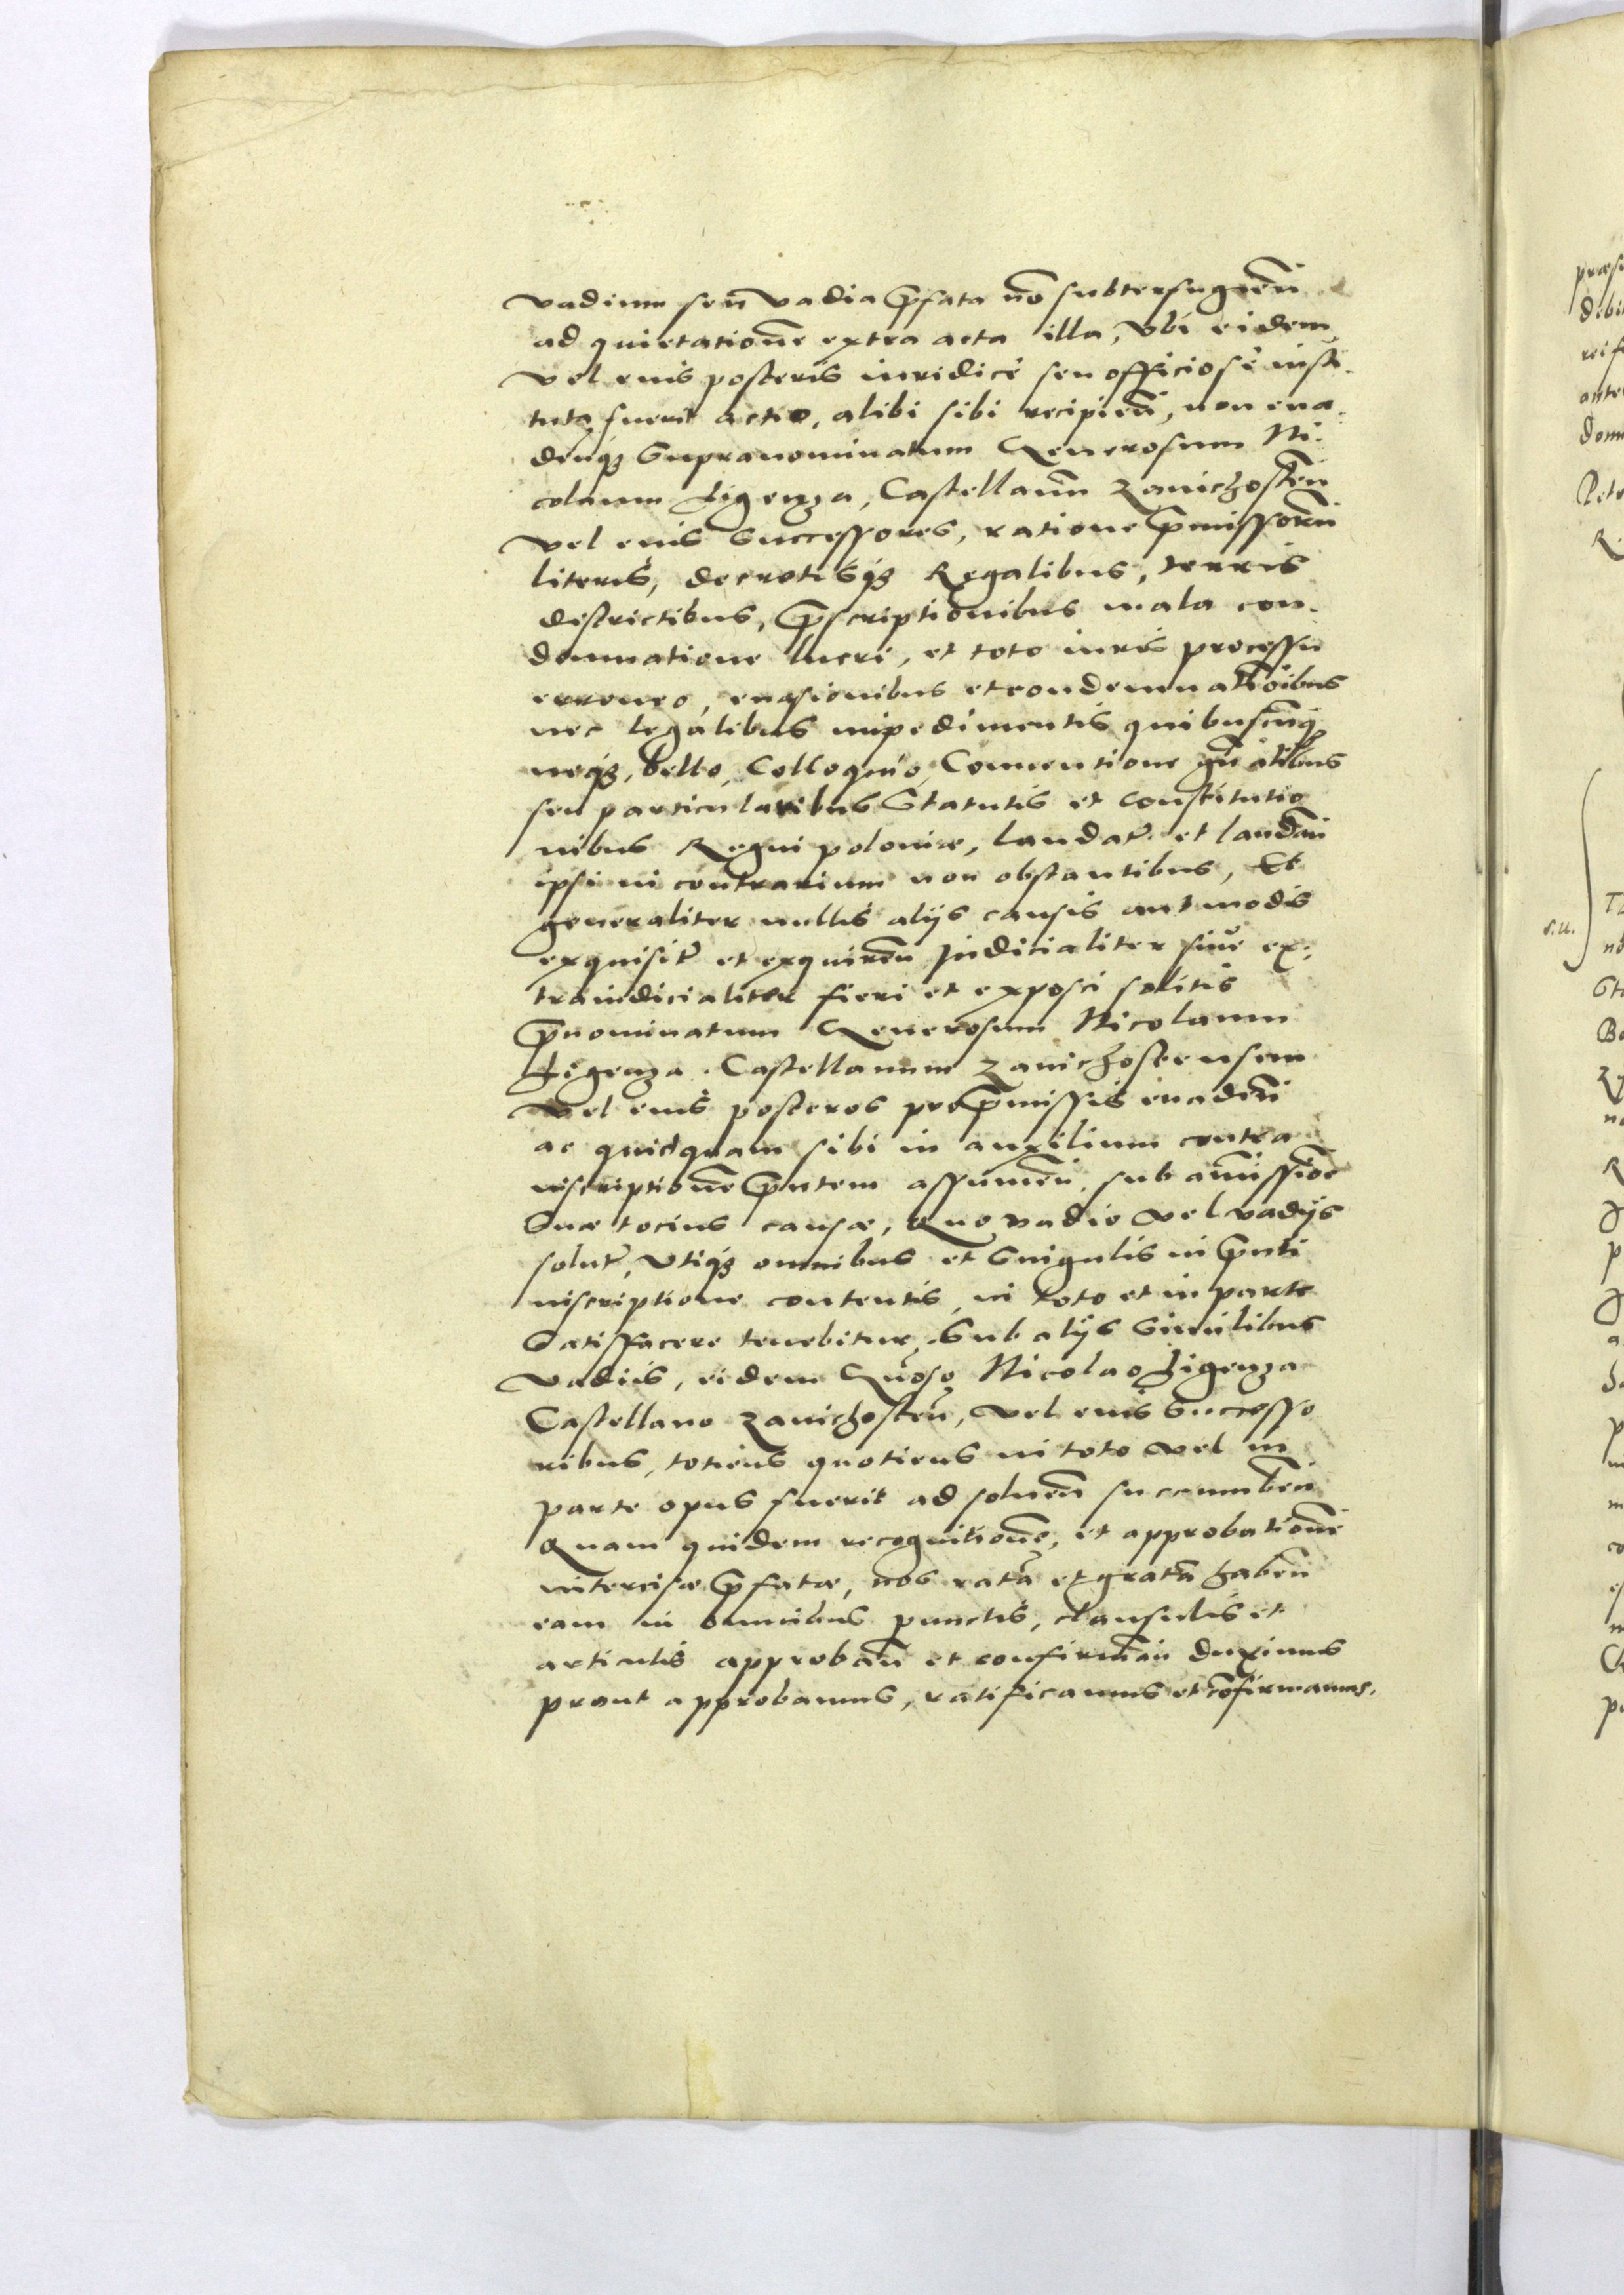 vadium seu vadia p̄fata nō subterfugien̄
ad quietationē extra acta illa, vbi eidem
vel eius posteris iuridicè seu officiosè insti-
tuta fuerit actio, alibi sibi recipien̄, non eua-
den̄qȝ Supranominatum Generosum Ni-
colaum Ligenza, Castellanū Zavichosten̄
vel eius Successores, ratione p̄missorū
literis, decretisqȝ Regalibus, terris
districtibus, p̄scriptionibus mala con-
demnatione lucri, et toto iuris processu
erroneo, euasionibus et condemnatioībus
nec legalibus impedimentis quibuscunqȝ
neqȝ, bello, Colloquio, Conuentione gn̄alibus
seu particularibus Statutis et constitutio
nibus Regni poloniæ, laudat̄ et laudan̄
ipsi in contrarium non obstantibus, Et
generaliter nullis alijs causis aut modis
exquisit̄ et exquiren̄ Judicialiter siue ex-
traiudicialiter fieri et exposci solitis
p̄nominatum Generosum Nicolaum
Ligenza. Castellanum Zavichostensem
vel eius posteros pro p̄missis euaden̄
ac quidquam sibi in auxilium contra
inscriptionē p̄ntem assumen̄, sub amissiōe
Suæ tocius causæ, Quo vadio vel vadijs
solut̄, vtiqȝ omnibus et Singulis in p̄nti
inscriptione contentis, in toto et in parte
Satisfacere tenebitur, Sub alijs Similibus
vadiis, eidem Gn̄oso Nicolao Ligenza
Castellano Zavichosten̄, vel eius Successo
ribus, totiens quotiens in toto vel in
parte opus fuerit ad soluen̄ succumben̄
Quam quidem recognitionē, et approbationē
intercisæ p̄fatæ, nos ratā et gratā haben̄
eam in omnibus punctis, clausulis et
articulis approban̄ et confirman̄ duximus
prout approbamus, ratificamus et cōfirmamus.